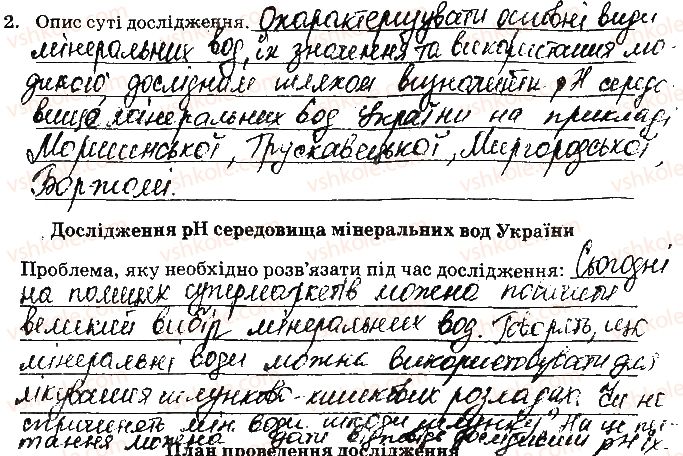 2. Опис суті дослідження. Охарактеризувати основні види
мінеральних вод, їх значення та використання
дослідним шляхом визначити pH середо
вища мінеральних вод України на прикладі
Моршинської, Трускавецької, Миргородської,
Боржомі.
Дослідження pH середовища мінеральних вод України
Проблема, яку необхідно розв'язати під час дослідження: Сьогодні
на полицях супермаркетів можна помітити
великий вибір мінеральних вод. Говорять, що
мінеральні води можна використовувати для
лікування шлунково-кишкових розладах. Чи не
спричинять мін. води шкоди шлунку? На це пи
тання можна дати відповідь дослідивши pH їх.
План проведення дослідження